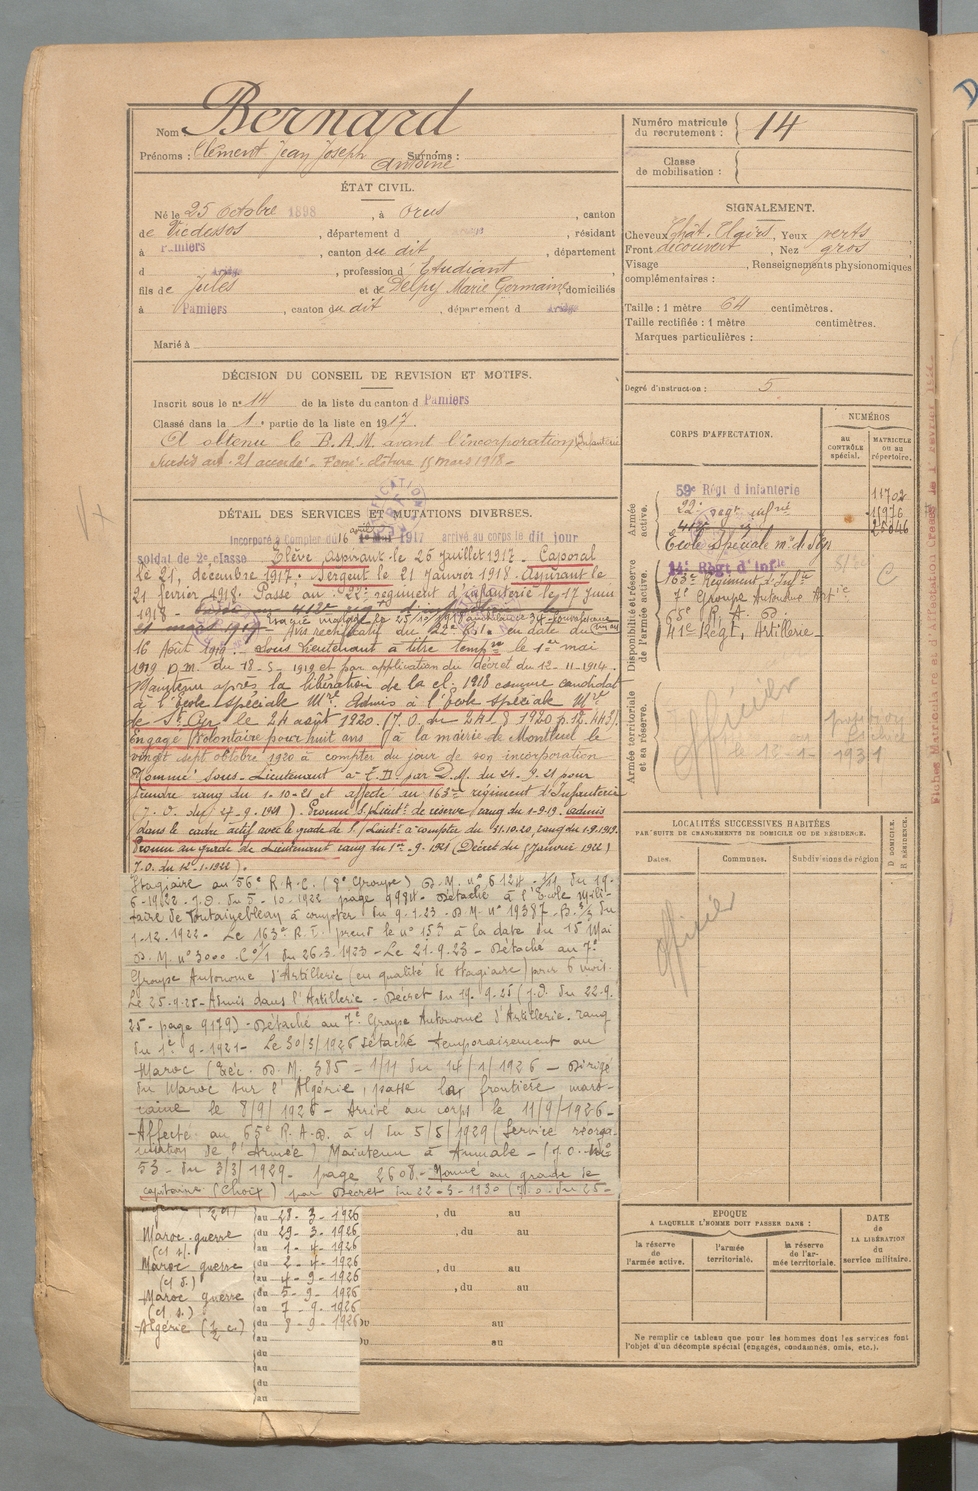 Nom : Bernard
Prénoms : Clément Jean Joseph Antoine Surnoms :
ÉTAT CIVIL.
Né le 25 octobre 1898, à Orus, canton
de Vicdessos, département d, résidant
à Pamiers, canton du dit, département
d Ariège, profession d'Etudiant,
fils de Jules et de Delpy Marie Germaine, domiciliés
à Pamiers, canton du dit, département d Ariège
Marié à
DÉCISION DU CONSEIL DE REVISION ET MOTIFS.
Inscrit sous le n° 14 de la liste du canton d Pamiers
Classé dans la 1e partie de la liste en 1917.
A obtenu le B.A.M. avant l'incorporation Infanterie
Sursis art. 21 accordé - clôture 15 mars 1918 -
DÉTAIL DES SERVICES ET MUTATIONS DIVERSES.
Incorporé à Compter du 16 avril 1917 arrivé au corps le dit jour
soldat de 2e classe Elève aspirant le 25 juillet 1917 - Caporal
le 21, décembre 1917. Sergent le 21 Janvier 1918. Aspirant le
21 fevrier 1918. Passé au 22e regiment d'infanterie le 17 Juin
1918 - Passé au 412e regt d'infanterie le
21 mars 1919 -
du 22e en date du
16 Août 1919 - Sous Lieutenant à titre tempre le 1er mai
1919 D.M. du 18-5-1919 et par application du décret du 12-11-1914.
Maintenu après la libération de la cl. 1918 comme candidat
à l'école spéciale Mre. Admis à l'école spéciale Mre
de St Cyr le 24 août 1920. (J.O. du 24.8.1920 p.12.443).
Engagé Volontaire pour huit ans à la mairie de Montreuil le
vingt sept octobre 1920 à compter du jour de son incorporation
Nommé sous-Lieutenant à T.D par D.M. du 24-9-21 pour
prendre rang du 1-10-21 et affecté au 163me regiment d'Infanterie
(J.O. du 27-9-1921). Promu S/Lieut. de réserve rang du 1-9-19. admis
dans le cadre actif avec le grade de S/Lieut. à compter du 31.10.20, rang du 1-9-1919.
Promu au grade de Lieutenant rang du 1er-9-1921 (Décret du 5 Janvier 1922)
J.O. du 12-1-1922).
Stagiaire au 56e R.A.C. (8e Groupe) D.M. n° 6124 - 3/1 du 19-
6-1922. J.O. du 5-10-1922 page 9994 - Détaché à l'Ecole mili-
taire de Fontainebleau à compter du 9.1.23. D.M. n° 19387 du
1-12-1922 - Le 163e R.I. prend le n° 153 à la date du 15 Mai
D.M. n° 3000 du 26-3-1923 - Le 21.9.23 - Détaché au 7e
Groupe Autonome d'Artillerie (en qualité de stagiaire) pour 6 mois.
Le 25-9-25 - Admis dans l'Artillerie - Décret du 19-9-25 (J.O. du 22.9.
25 - page 9179) - Détaché au 7e Groupe Autonome d'Artillerie. rang
du 1e 9-1921 - Le 30/3/1926 Détaché temporairement au
Maroc (Exéc. D.M. 385 - 1/11 du 14/1/1926 - Dirigé
du Maroc sur l'Algérie, passé la frontière maro-
caine le 8/9/1926 - Arrivé au corps le 11/9/1926 -
- Affecté au 65e R.A.D. à d/ du 5/5/1929 (Service réorga-
nisation de l'Armée) Maintenu à Aumale - (J.O. N°
53 - du 3/3/1929 - page 2608 - Nommé au grade de
capitaine (Choix) par Décret du 22-3-1930 (J.O. du 25-
au 28-3-1926
Maroc-guerre du 29-3-1926
(cl s/. au 1-4-1926
Maroc guerre du 2-4-1926
(cl d.) au 4-9-1926
Maroc guerre du 5-9-1926
(cl s.) au 7-9-1926
Algérie (1/2 c.) du 8-9-1926
au
du
au
du
au
, du au
, du au
, du au
, du au
au
au
Numéro matricule du recrutement : 14
Classe de mobilisation :
SIGNALEMENT.
Cheveux Chât. Clairs, Yeux verts
Front découvert, Nez gros
Visage, Renseignements physionomiques
complémentaires :
Taille : 1 mètre 64 centimètres.
Taille rectifiée : 1 mètre centimètres.
Marques particulières :
Degré d'instruction : 5
CORPS D'AFFECTATION.
NUMÉROS
au CONTRÔLE spécial.
MATRICULE ou au répertoire.
Armée active.
59e Régt d'Infanterie 11702
22e regt infrie 15976
412e 25846
Ecole Spéciale mre de St Cyr
Disponibilité et réserve de l'armée active.
14e Régt d'Infie C
163e Régiment d'Infie
7e Groupe Autonome Artie
65e R.A.D.
41e Régt, Artillerie -
Armée territoriale et sa réserve.
Officier
le 12-1-1931
Fiches Matricules et d'Affectation
LOCALITÉS SUCCESSIVES HABITÉES
PAR SUITE DE CHANGEMENTS DE DOMICILE OU DE RÉSIDENCE.
D. DOMICILE.
R. RÉSIDENCE.
Dates. Communes. Subdivisions de région
Officier
EPOQUE
A LAQUELLE L'HOMME DOIT PASSER DANS :
DATE de LA LIBÉRATION du service militaire.
la réserve de l'armée active.
l'armée territoriale.
la réserve de l'armée territoriale.
Ne remplir ce tableau que pour les hommes dont les services font
l'objet d'un décompte spécial (engagés, condamnés, omis, etc.).